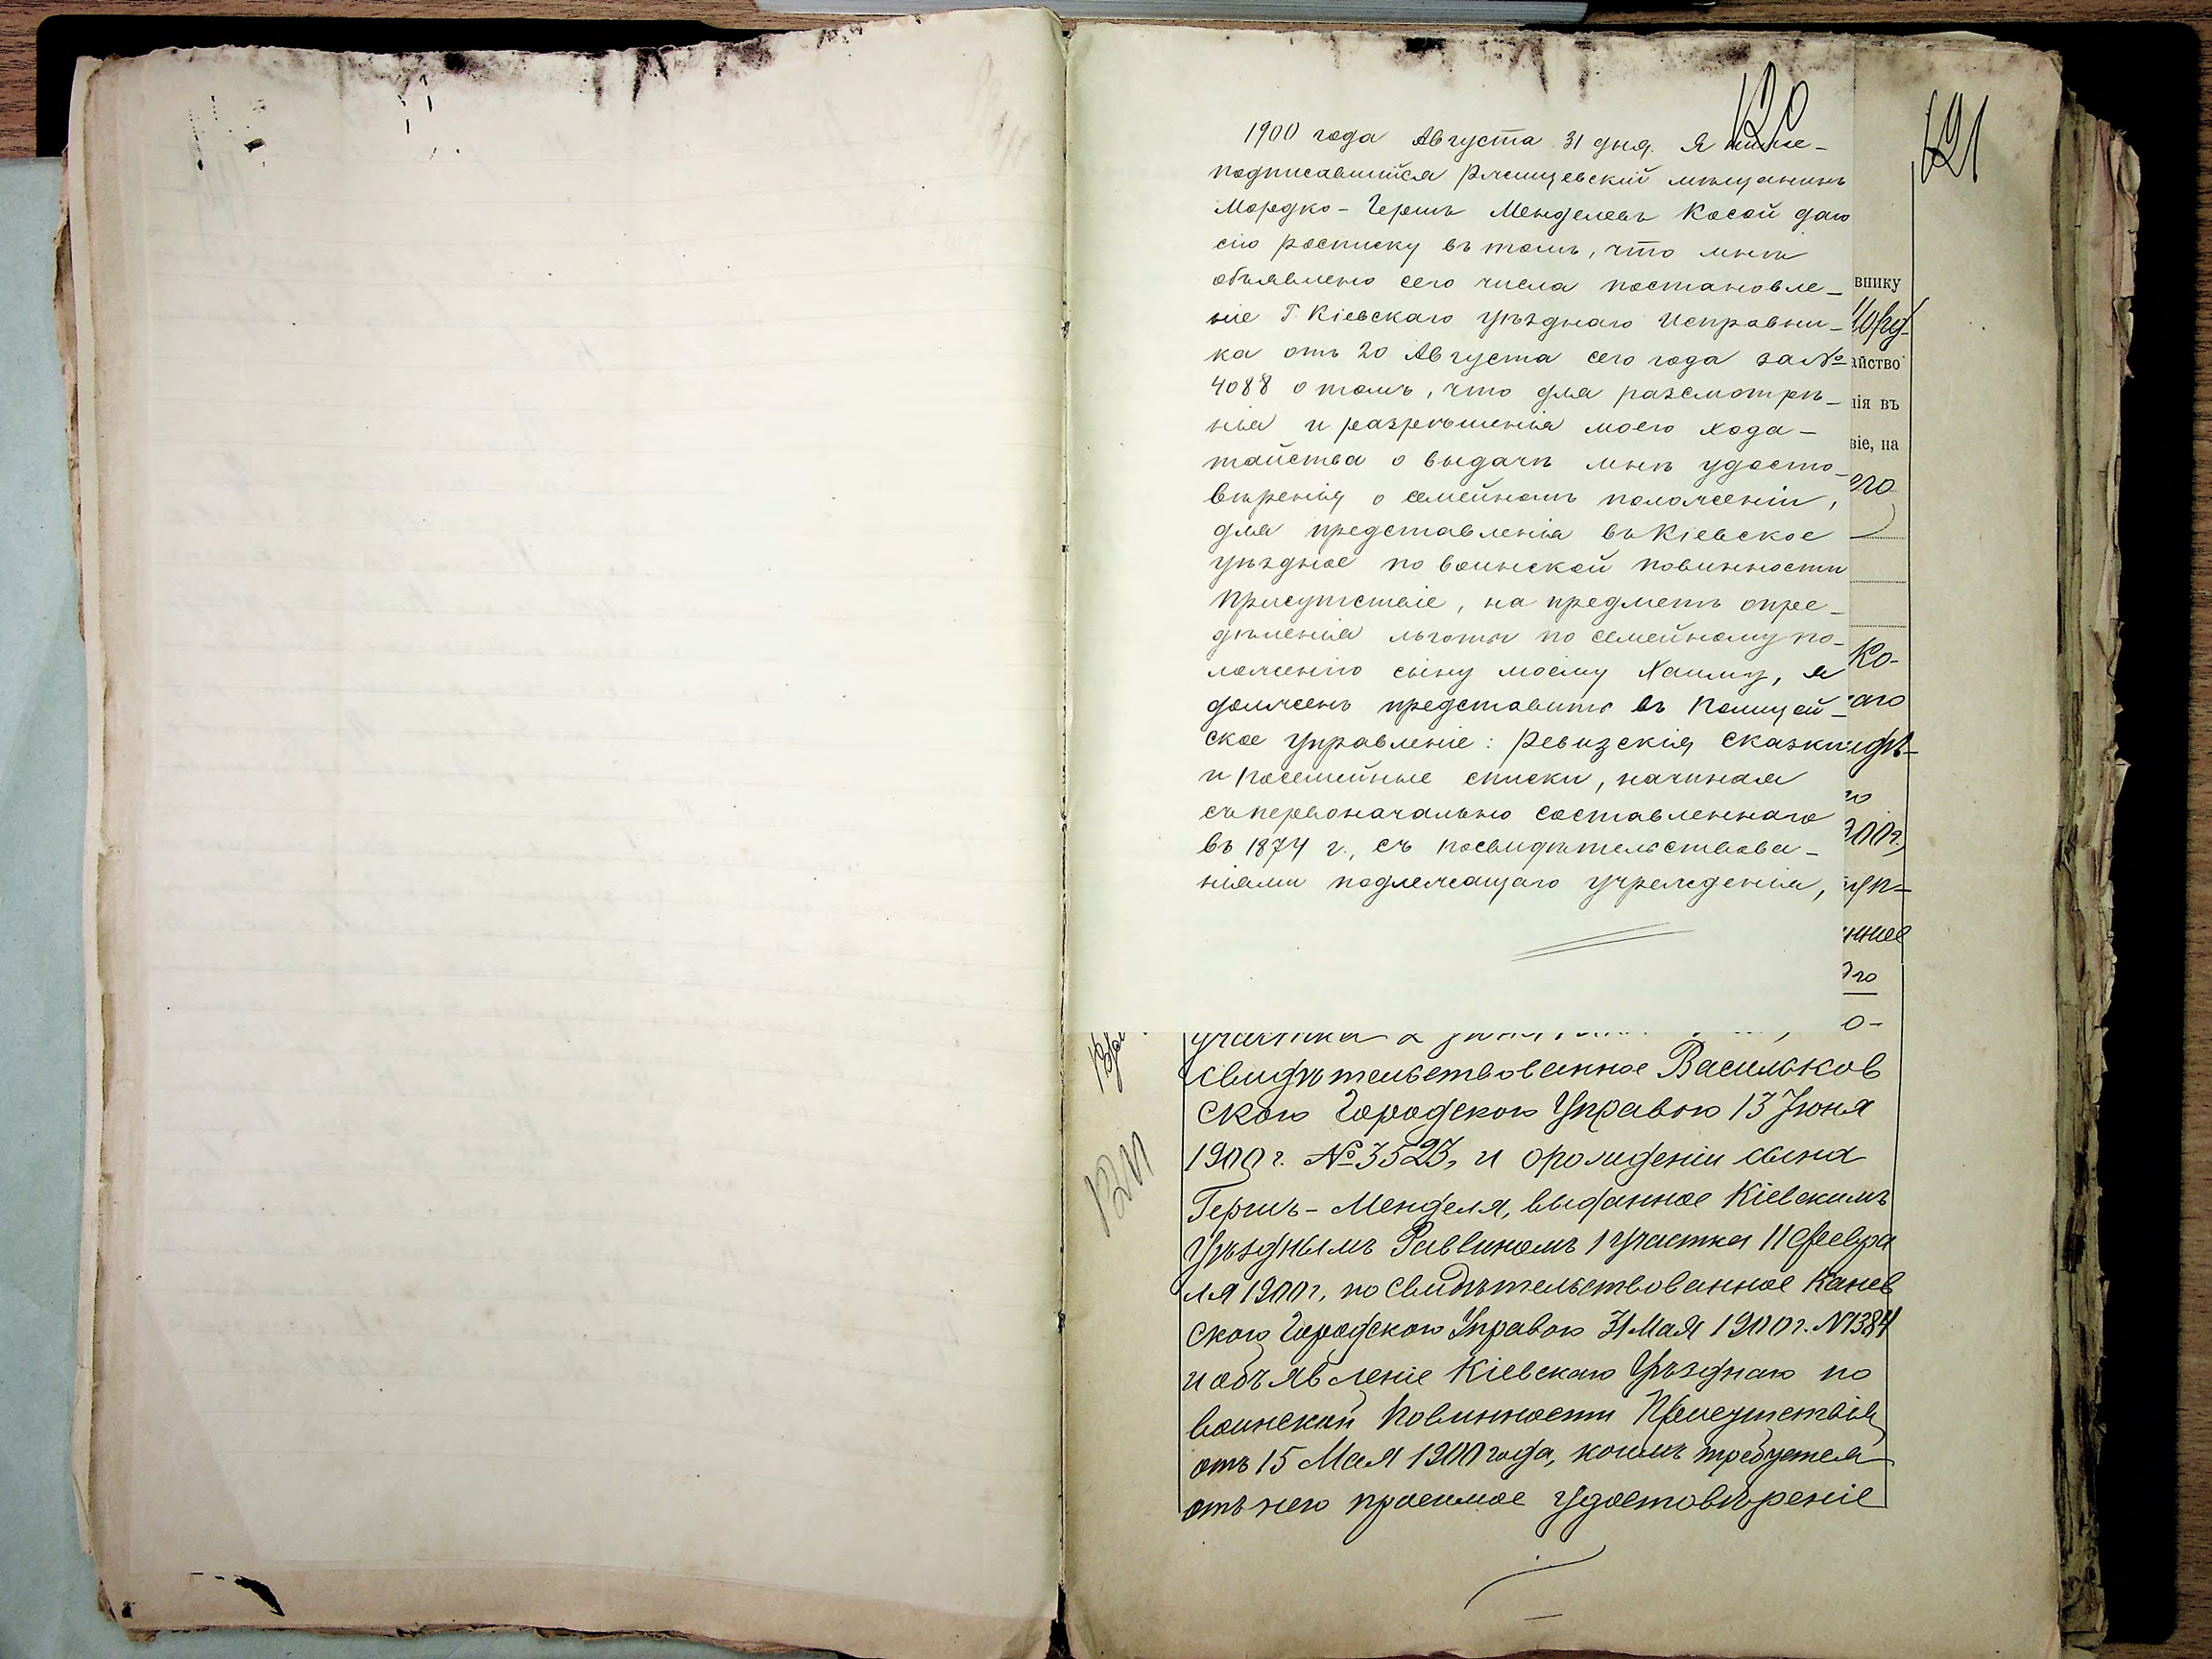 120
121
1900 года Августа 31 дня. Я ниже-
подписавшійся Ржищевскій мѣщанинъ
Мордко-Гершъ Менделевъ Косой даю
сію росписку въ томъ, что мнѣ
объявлено сего числа постановле-
ніе Г. Кіевскаго Уѣзднаго Исправни-
ка отъ 20 Августа сего года за №
4088 о томъ, что для разсмотрѣ-
нія и разрѣшенія моего хода-
тайства о выдачѣ мнѣ удосто-
вѣренія о семейномъ положеніи,
для представленія въ Кіевское
уѣздное по воинской повинности
Присутствіе, на предметъ опре-
дѣленія льготы по семейному по-
ложенію сыну моему Хаиму, я
долженъ представить въ Полицей-
ское Управленіе: Ревизскія сказки
и посемейные списки, начиная
съ первоначально составленнаго
въ 1874 г., съ посвидѣтельствова-
ніями подлежащаго учрежденія,
внику
Морд-
айство
нія въ
віе, на
его
Ко-
аго
идѣ-
го
900 г.,
нное
0-
участка
свидѣтельствованное Васильков
скою Городскою Управою 13 Іюня
1900 г. № 3523, и о рожденіи сына
Гершъ-Менделя, выданное Кіевскимъ
Уѣзднымъ Раввиномъ 1 участка 11 Февра
ля 1900 г, посвидѣтельствованное Канев
скою Городскою Управою 31 Мая 1900 г. № 1384
и объявленіе Кіевскаго Уѣзднаго по
воинской Повинности Присутствія
отъ 15 Мая 1900 года, коимъ требуется
отъ него просимое удостовѣреніе